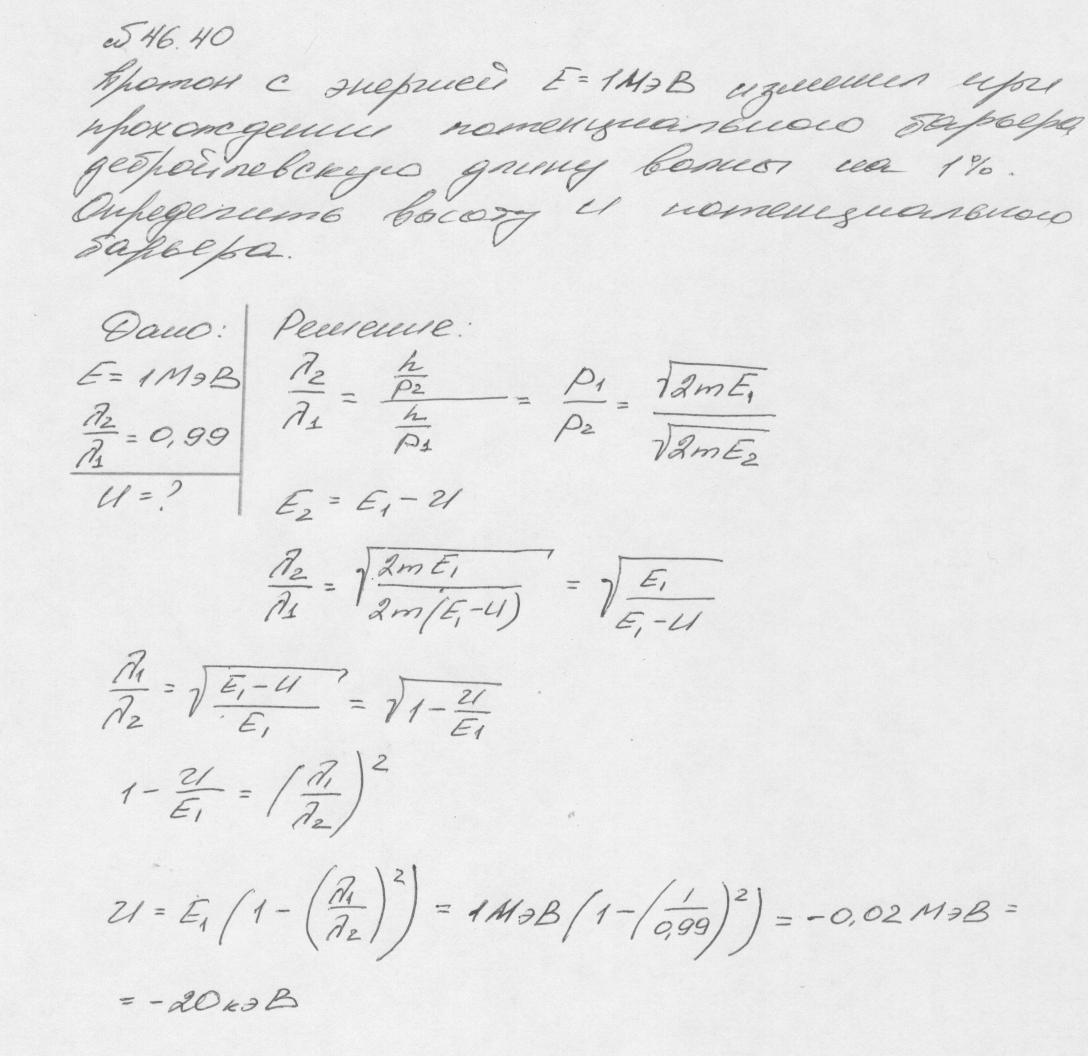 №46.40
Протон с энергией E = 1МэВ изменил при
прохождении потенциального барьера
дебройлевскую длину волны на 1%.
Определить высоту U потенциального
барьера.
Дано:
E = 1МэВ
λ₂/λ₁ = 0,99
U = ?
Решение:
λ₂/λ₁ = (h/p₂)/(h/p₁) = p₁/p₂ = √(2mE₁)/√(2mE₂)
E₂ = E₁ - U
λ₂/λ₁ = √(2mE₁/2m(E₁-U)) = √(E₁/(E₁-U))
λ₁/λ₂ = √((E₁-U)/E₁) = √(1-U/E1)
1 - U/E₁ = (λ₁/λ₂)²
U = E₁(1 - (λ₁/λ₂)²) = 1МэВ(1-(1/0,99)²) = -0,02 МэВ =
= -20кэВ